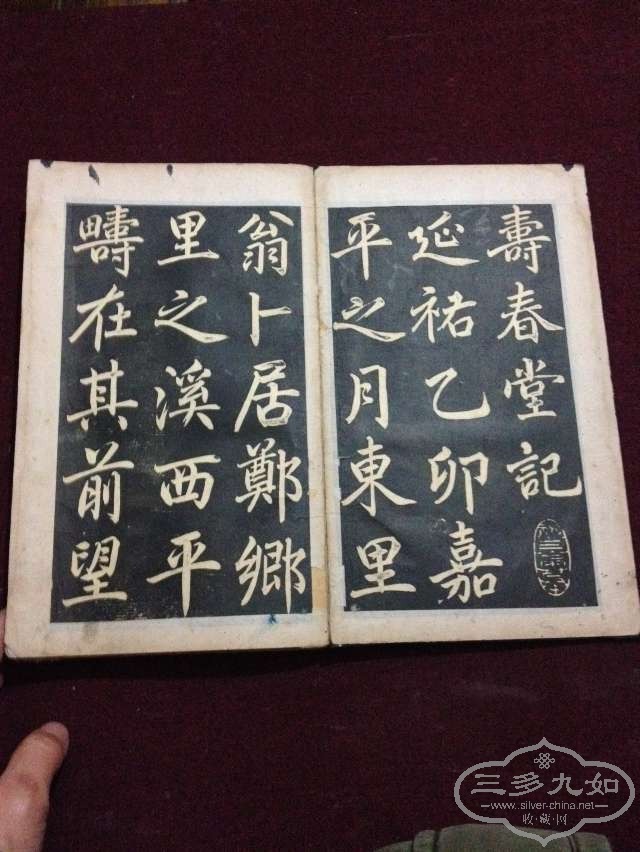 壽春堂記
延祐乙卯嘉
平之月東里
翁卜居鄭鄉
里之溪西平
疇在其前望
三多九如
www.silver-china.net
收·藏·网